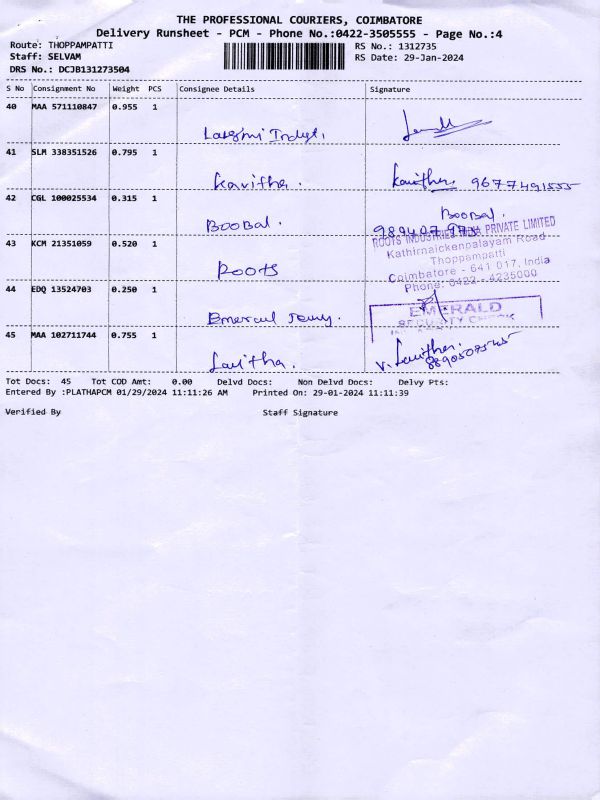 THE PROFESSIONAL COURIERS, COIMBATORE
Delivery Runsheet - PCM - Phone No.:0422-3505555 - Page No.:4
Route: THOPPAMPATTI RS No.: 1312735
Staff: SELVAM RS Date: 29-Jan-2024
DRS No.: DCJB131273504
S No Consignment No Weight PCS Consignee Details Signature
40 MAA 571110847 0.955 1
Laxsmi Indyst.
41 SLM 338351526 0.795 1
Kavitha. Kavitha. 9677491555
42 CGL 100025534 0.315 1
Boobal. Boobal.
ROOTS INDUSTRIES INDIA PRIVATE LIMITED
43 KCM 21351059 0.520 1
Kathirnaickenpalayam Road
Thoppampatti
Roots Coimbatore - 641 017, India
Phone: 0422 - 4235000
44 EDQ 13524703 0.250 1
EMERALD
SECURITY CHECK
45 MAA 102711744 0.755 1
Tot Docs: 45 Tot COD Amt: 0.00 Delvd Docs: Non Delvd Docs: Delvy Pts:
Entered By :PLATHAPCM 01/29/2024 11:11:26 AM Printed On: 29-01-2024 11:11:39
Verified By Staff Signature